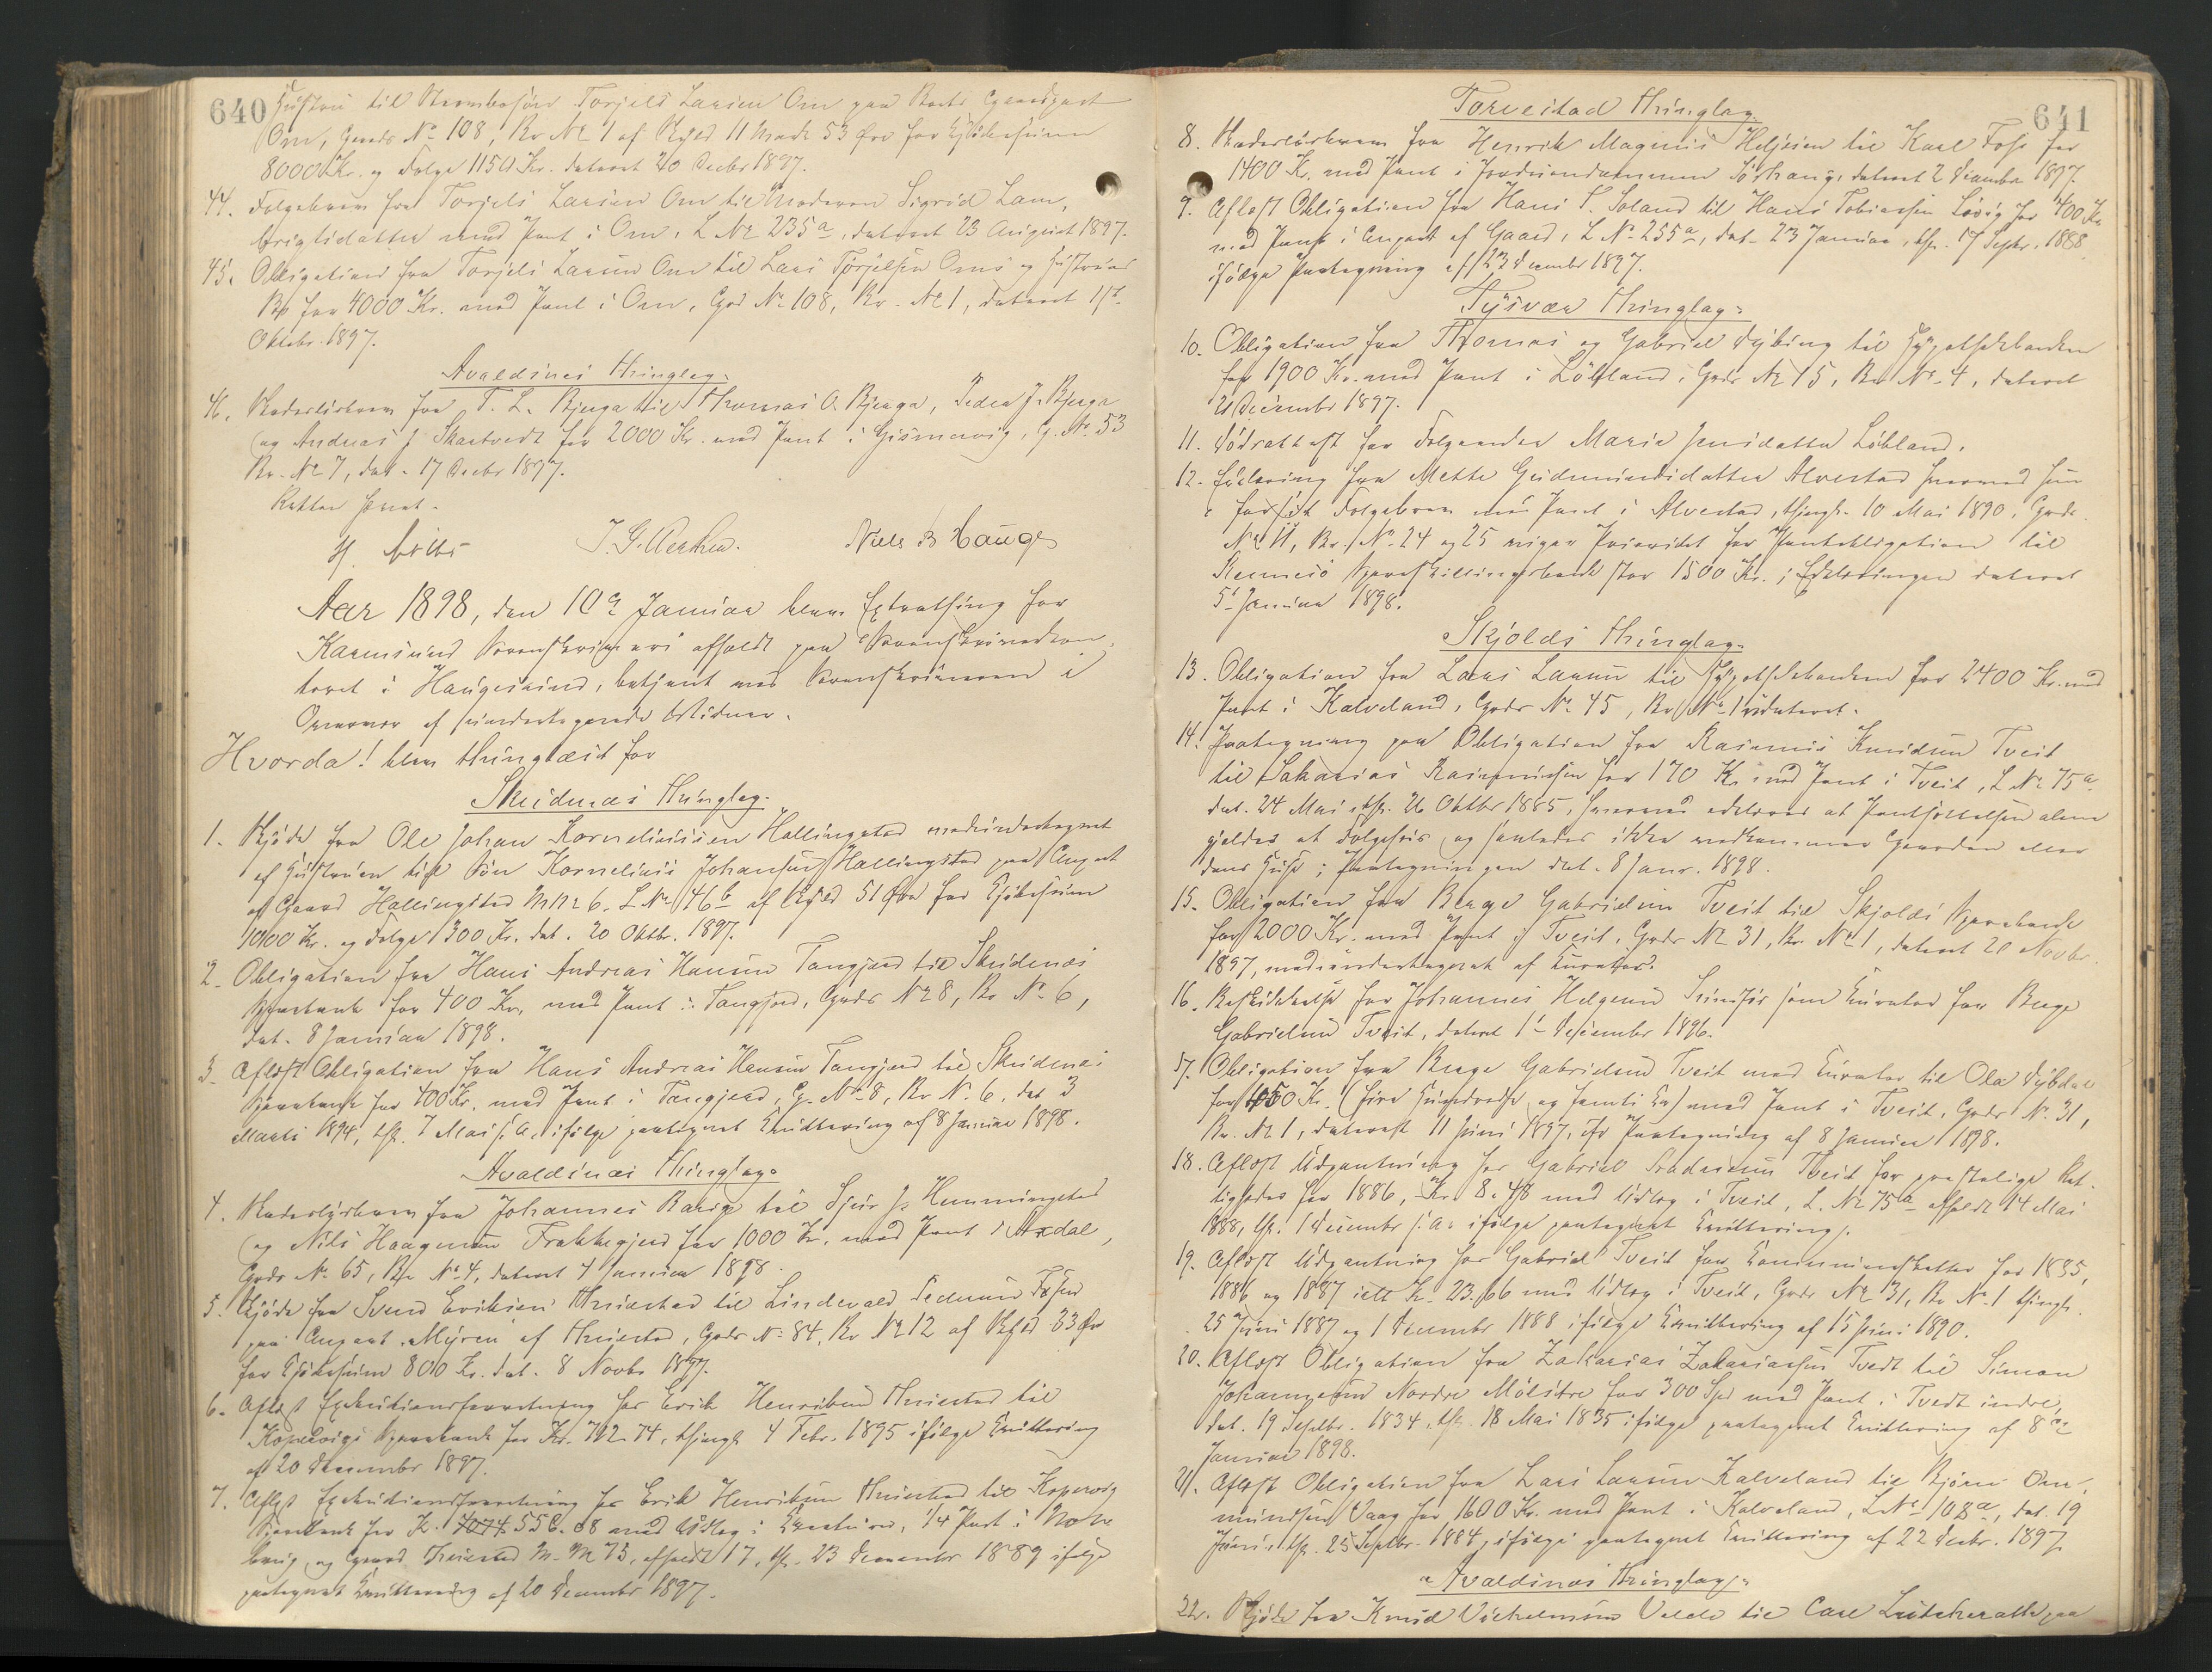 640
Hustru til Strandsøen Torjels Larsen Om paa Gaardpart
Om, Gaards No 108, Br No 1 af Skyld 11 Mark 53 Øre for Kjøbesum
8000 Kr. og Folge 1150 Kr. dateret 20 Decbr 1897.
44. Folgebrev fra Torjels Larsen Om til Moderen Sigrid Lars-
datter med Pant i Om, L No 235a, dateret 23 August 1897.
45. Obligation fra Torjels Larsen Om til Lars Torjelsen Oms og Hustrues
Bo for 4000 Kr. med Pant i Om, Grd No 108, Br. No 1, dateret 15de
Oktobr. 1897.
Avaldsnes Thinglag.
46. Skadesløsbrev fra T. L. Bjerga til Thomas A. Bjerga, Peder J. Bjerga
og Andreas J. Skartvedt for 2000 Kr. med Pant i Gismervig, G. No. 53
Br. No 7, dat. 17 Decbr 1897.
Retten hævet.
J. G. Aerhus. Niels B Hauge
Aar 1898, den 10de Januar blev Extrathing for
Karmsund Sorenskriveri afholdt paa Sorenskriverkon-
toret i Haugesund, betjent med Sorenskriveren i
Overvær af undertegnede Vidner.
Hvorda! blev thinglæst for
Skudenæs Thinglag.
1. Skjøde fra Ole Johan Korneliussen Hallingstad medundertegnet
af Hustruen til Søn Kornelius Johansen Hallingstad paa Angat
af Gaard Hallingstad M No 6. L No 46b af Skyld 51 Øre for Kjøbesum
1000 Kr. og Folge 300 Kr. dat. 20 Oktbr. 1897.
2. Obligation fra Hans Andreas Hansen Tangjerd til Skudenæs
Sparebank for 400 Kr. med Pant i Tangjerd, Gards No 8, Br No. 6,
dat. 8 Januar 1898.
3. Aflæst Obligation fra Hans Andreas Hansen Tangjerd til Skudenæs
Sparebank for 400 Kr. med Pant i Tangjerd, G. No 8, Br No. 6, dat 3
Marts 1894, thl. 7 Mai s. A. ifølge paategnet Kvittering af 8 Januar 1898.
Avaldsnes Thinglag.
4. Skadesløsbrev fra Johannes Rarip til Sjur J. Hemmingstad
og Nils Haagensen Frakkagjerd for 1000 Kr. med Pant i Axdal,
Gards No. 65, Br No. 4, dateret 7 Januar 1898.
5. Skjøde fra Svend Eriksen Thuestad til Lindevald Pedersen Fosen
paa Angat "Myren" af Thuestad, Gards No. 84, Br No 12 af Skyld 33 Øre
for Kjøbesum 800 Kr. dat. 8 Novbr 1897.
6. Aflæst Exekutionsforretning for Erik Henriksen Thuestad til
Kopervigs Sparebank for Kr. 712.74, thingl. 4 Febr. 1895 ifølge Kvittering
af 20 December 1897.
7. Aflæst Exekutionsforretning for Erik Henriksen Thuestad til Kopervig
Sparebank for Kr. 4074 556.08 med Udlæg i Kreaturer, 1/4 Part i Note-
brug, og Gaard Thuestad M. No 73, afholdt 17, thl. 23 December 1889 ifølge
paategnet Kvittering af 20 December 1897.
641
Torvestad Thinglag.
8. Skadesløsbrev fra Henrik Magnus Heljesen til Karl Foss for
1400 Kr. med Pant i Jordeiendommen Sørhaug, dateret 2 December 1897.
9. Aflæst Obligation fra Hans T. Soland til Hans Tobiassen Løvig for 400 Kr
med Pant i Angat af Gaard, L No 255a, dat. 23 Januar, thl. 17 Septr. 1888
ifølge Paategning af 23 December 1897.
Tysvær Thinglag.
10. Obligation fra Thomas og Gabriel Dybing til Hypothekbanken
for 1900 Kr. med Pant i Løbland, Gards No 15, Br No. 4, dateret
21 December 1897.
11. Dødsattest for Folgeenke Maria Jensdatter Løbland.
12. Erklæring fra Mette Gudmundsdatter Alvestad hvormed hun
for sit Folgebrev med Pant i Alvestad, thingl. 10 Mai 1890, Gards
No 11, Br. No. 24 og 25 viger Prioritet for Pantobligation til
Rennesø Spareskillingsbank stor 1500 Kr.; Erklæringen dateret
5 Januar 1898.
Skjolds Thinglag.
13. Obligation fra Lars Larsen til Hypothekbanken for 2400 Kr. med
Pant i Kalveland, Gards No. 45, Br No 1 udateret.
14. Paategning paa Obligation fra Rasmus Knudsen Tveit
til Sakarias Rasmussen for 170 Kr. med Pant i Tveit, L No 75a
dat. 24 Mai, thl. 26 Oktbr 1885, hvorved erklæres at Pantsættelsen alene
gjelder et Folgehus og saaledes ikke vedkommer Gaarden eller
dens Huse; Paategningen dat. 8 Janr. 1898.
15. Obligation fra Berge Gabrielsen Tveit til Skjolds Sparebank
for 2000 Kr. med Pant i Tveit, Gards No 31, Br. No 1, dateret 20 Novbr.
1897, medundertegnet af Kurator.
16. Beskikkelse for Johannes Helgesen som Kurator for Berge
Gabrielsen Tveit, dateret 1 December 1896.
17. Obligation fra Berge Gabrielsen Tveit med Kurator til Ola Dybdal
for 450 Kr. (fire Hundrede og femti Kr) med Pant i Tveit, Gards No. 31,
Br. No 1, dateret 11 Juni 1897, Paategning af 8 Januar 1898.
18. Aflæst Udpantning for Gabriel Tveit for geistlige Ret-
tigheder for 1886, Kr. 8.48 med Udlæg i Tveit, L. No 75a afholdt 14 Mai
1888, thl. 1 December s. A. ifølge paategnet Kvittering.
19. Aflæst Udpantning for Gabriel Tveit for Kommuneskatter for 1885,
1886 og 1887 ialt Kr. 23.66 med Udlæg i Tveit, Gards No 31, Br No. 1 thingl.
25 Juni 1887 og 1 December 1888 ifølge Kvittering af 15 Juni 1890.
20. Aflæst Obligation fra Zakarias Zakariassen Tvedt til Simon
Johannesen Nordre Mølstre for 300 Spd med Pant i Tvedt indre,
dat. 19 Septbr. 1834, thl. 18 Mai 1835 ifølge paategnet Kvittering af 8de
Januar 1898.
21. Aflæst Obligation fra Lars Larsen Kalveland til Bjørn Om-
mundsen Vaag for 1600 Kr. med Pant i Kalveland, L No 108a, dat. 19
Juni, thl. 25 Septbr. 1884, ifølge paategnet Kvittering af 22 Decbr. 1897.
Avaldsnes Thinglag.
22. Skjøde fra Knud Vilhelmsen Velde til Carl Lutcherath paa